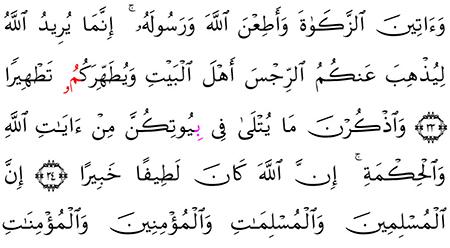 وَءَاتِينَ ٱلزَّكَوٰةَ وَأَطِعْنَ ٱللَّهَ وَرَسُولَهُۥٓ ۚ إِنَّمَا يُرِيدُ ٱللَّهُ
لِيُذْهِبَ عَنكُمُ ٱلرِّجْسَ أَهْلَ ٱلْبَيْتِ وَيُطَهِّرَكُمُۥ تَطْهِيرًا
٣٣ وَٱذْكُرْنَ مَا يُتْلَىٰ فِى بِيُوتِكُنَّ مِنْ ءَايَٰتِ ٱللَّهِ
وَٱلْحِكْمَةِ ۚ إِنَّ ٱللَّهَ كَانَ لَطِيفًا خَبِيرًا ٣٤ إِنَّ
ٱلْمُسْلِمِينَ وَٱلْمُسْلِمَٰتِ وَٱلْمُؤْمِنِينَ وَٱلْمُؤْمِنَٰتِ